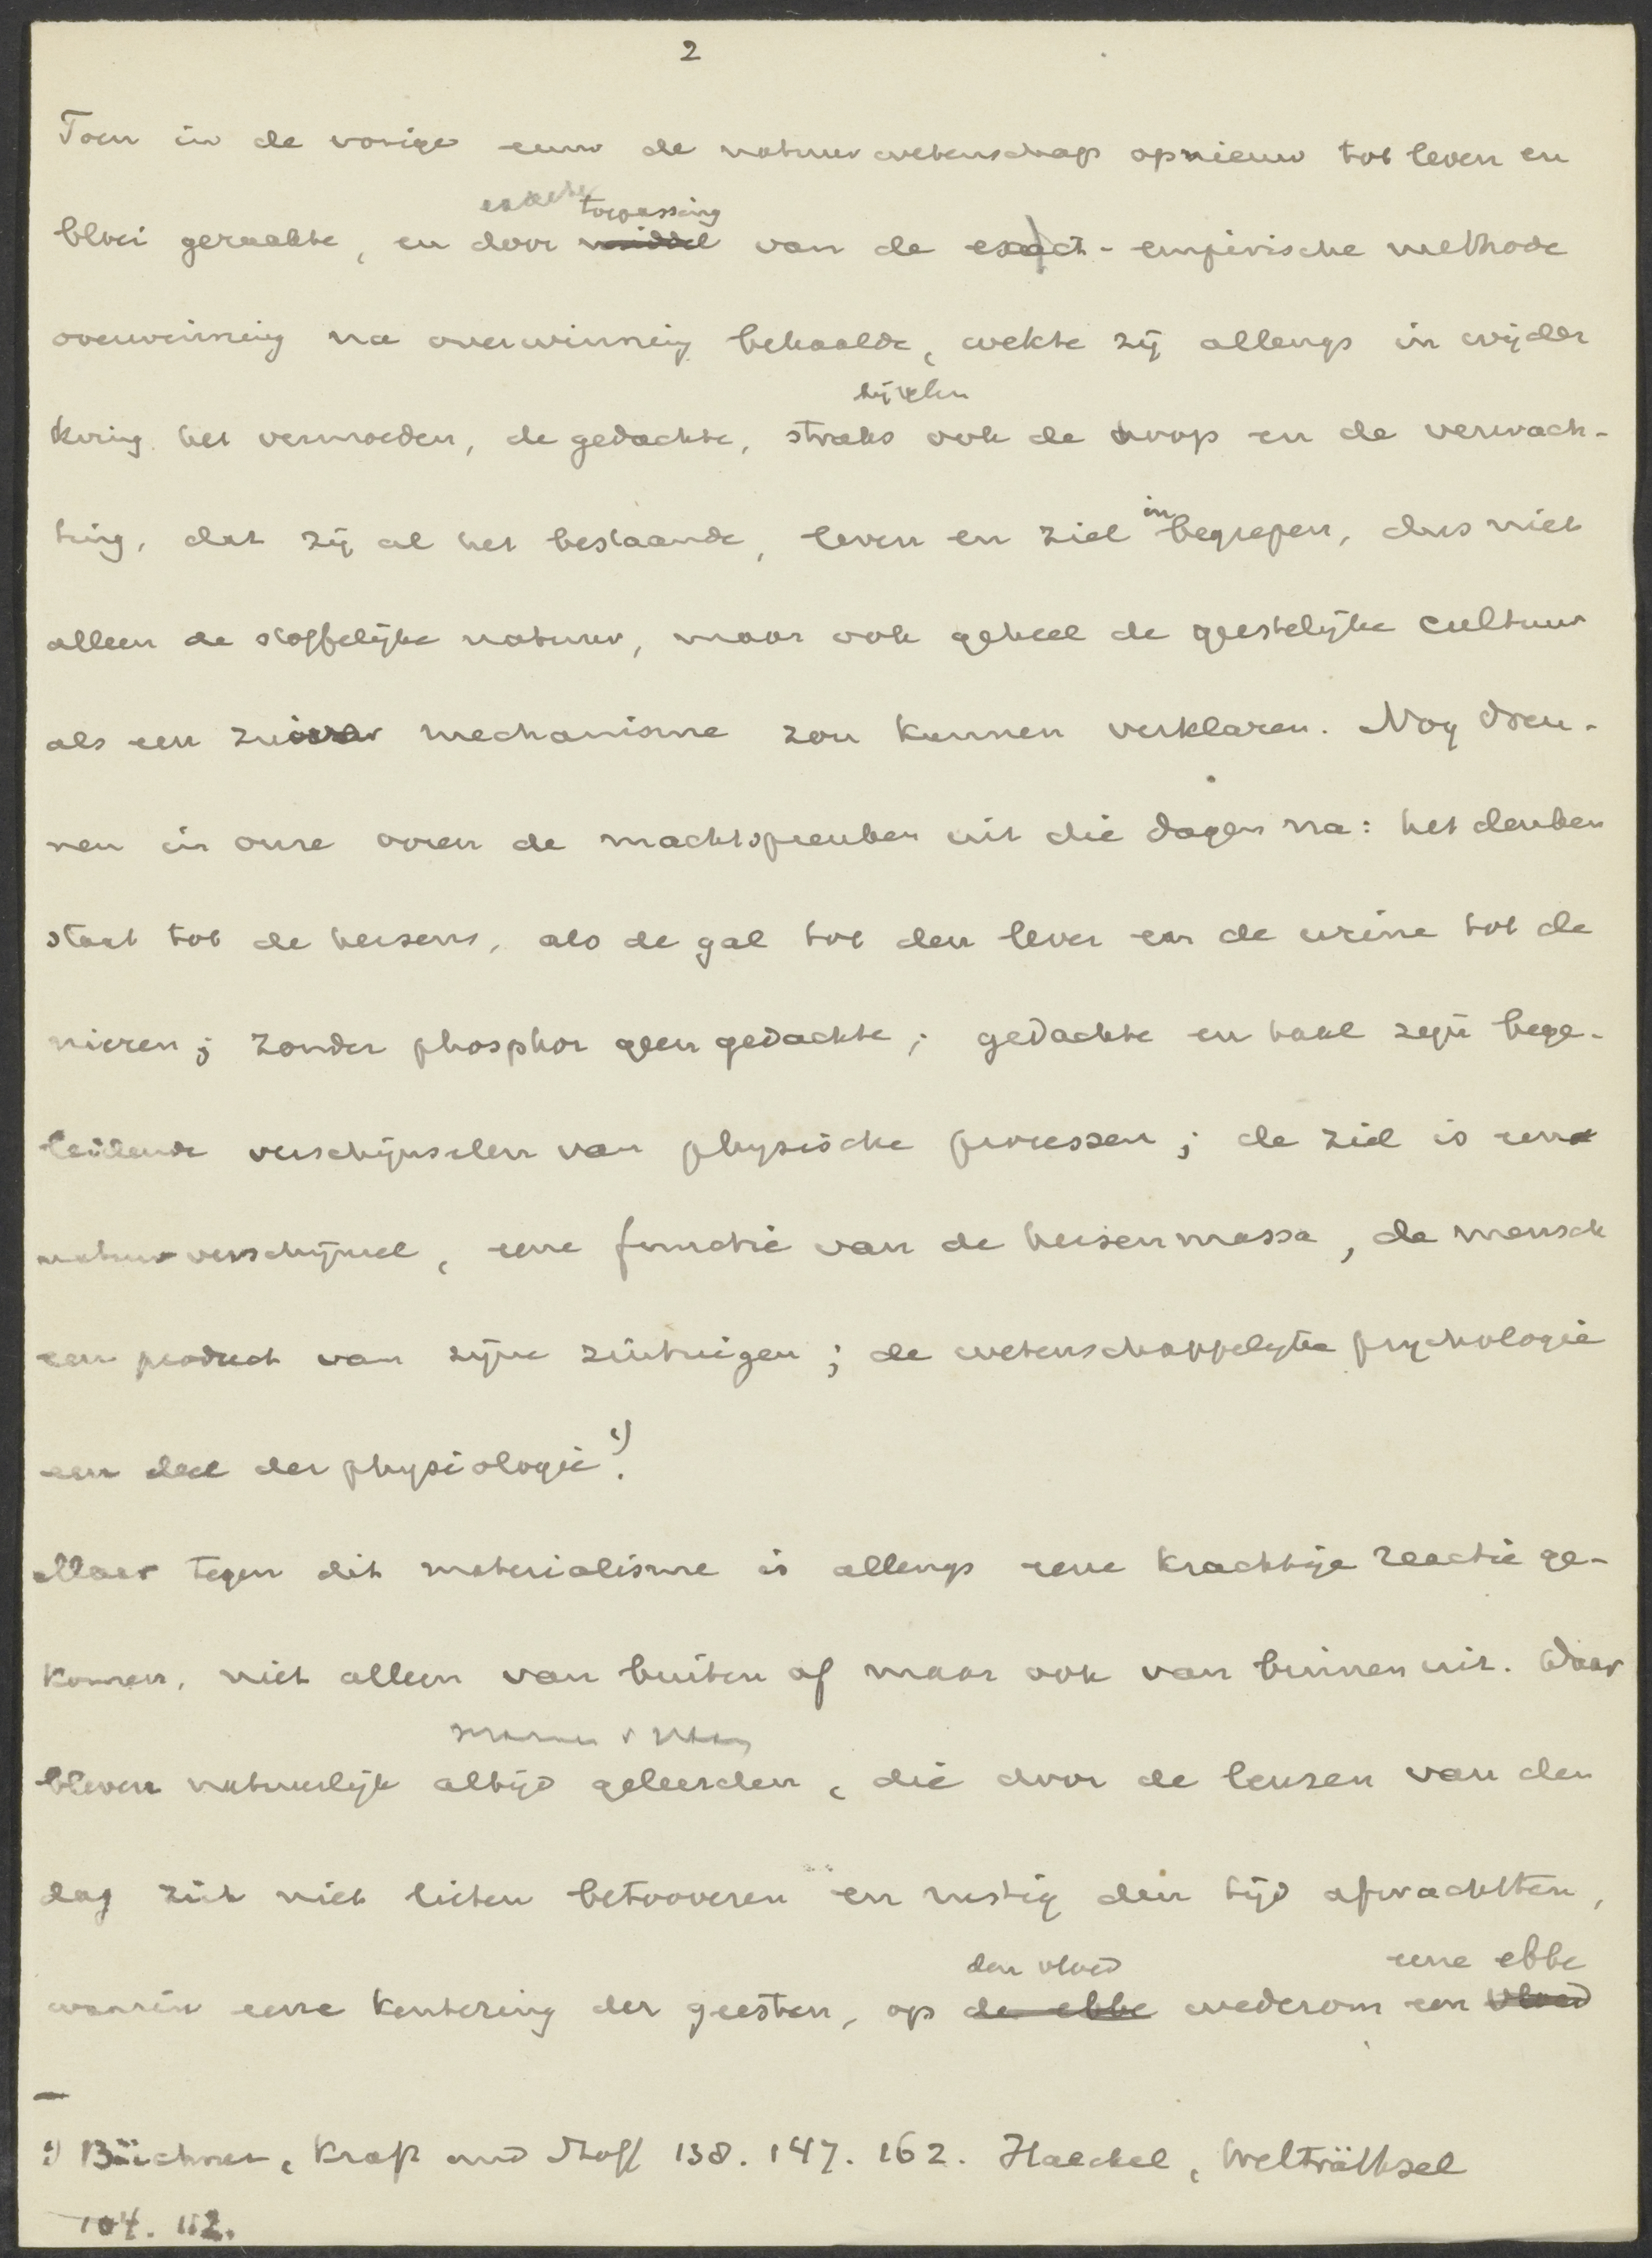 2
Toen in de vorige eeuw de natuurwetenschap opnieuw tot leven en
exacte toepassing
bloei geraakte, en door middel van de exact-empirische methode
overwinning na overwinning behaalde, wekte zij allengs in wijder
kring het vermoeden, de gedachte, straks ook de hoop en de verwach-
ting, dat zij al het bestaande, leven en ziel inbegrepen, dus niet
alleen de stoffelijke natuur, maar ook geheel de geestelijke cultuur
als een zuiver mechanisme zou kunnen verklaren. Nog dreu-
nen in onze ooren de machtspreuken uit die dagen na: het denken
staat tot de hersens, als de gal tot den lever en de urine tot de
nieren; zonder phosphor geen gedachte; gedachte en taal zijn bege-
leidende verschijnselen van physische processen; de ziel is een
natuurverschijnsel, eene functie van de hersenmassa, de mensch
een product van zijne zintuigen; de wetenschappelijke psychologie
een deel der physiologie 1).
Maar tegen dit materialisme is allengs eene krachtige reactie ge-
komen, niet alleen van buiten af maar ook van binnen uit. Daar
bleven natuurlijk altijd geleerden, die door de leuzen van den
dag zich niet lieten betooveren en rustig den tijd afwachtten,
den vloed eene ebbe
waarin eene kentering der geesten, op de ebbe wederom een vloed
1) Büchner, Kraft und Stoff 138. 147. 162. Haeckel, Welträthsel
104. 112.